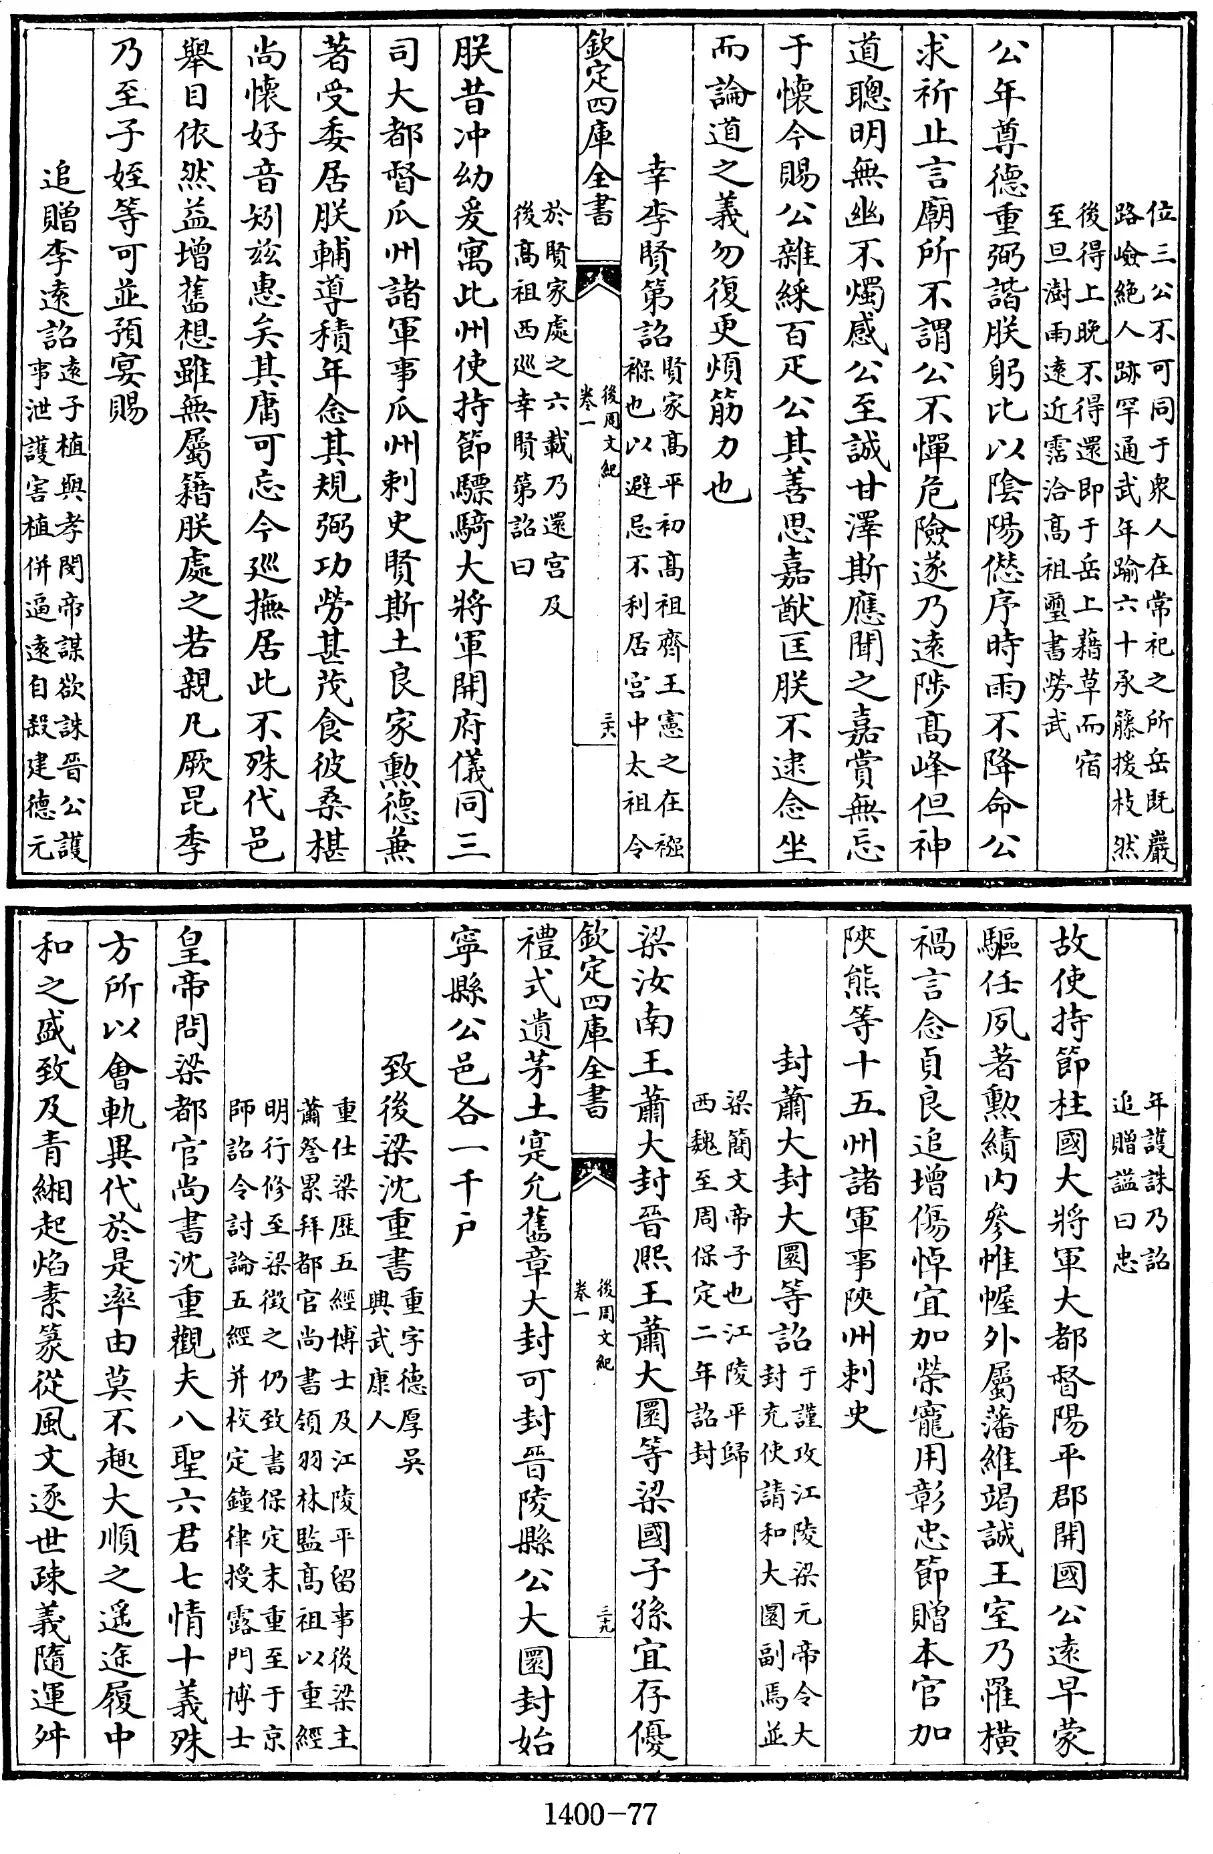 位三公不可同于衆人在常祀之所岳既巖
路嶮絶人跡罕通武年踰六十承籐援枝然
後得上晚不得還即于岳上藉草而宿
至旦澍雨遠近霑洽高祖璽書勞武
公年尊德重弼諧朕躬比以陰陽愆序時雨不降命公
求祈止言廟所不謂公不憚危險遂乃遠陟高峰但神
道聰明無幽不燭感公至誠甘澤斯應聞之嘉賞無忘
于懷今賜公雜綵百疋公其善思嘉猷匡朕不逮念坐
而論道之義勿復更煩筋力也
幸李賢第詔
賢家高平初高祖齊王憲之在襁
褓也以避忌不利居宫中太祖令
欽定四庫全書
後周文紀
卷一
三六
於賢家處之六載乃還宫及
後高祖西巡幸賢第詔曰
朕昔冲幼爰寓此州使持節驃騎大將軍開府儀同三
司大都督瓜州諸軍事瓜州刺史賢斯土良家勲德兼
著受委居朕輔導積年念其規弼功勞甚茂食彼桑椹
尚懷好音矧兹惠矣其庸可忘今巡撫居此不殊代邑
舉目依然益增舊想雖無屬籍朕處之若親凡厥昆季
乃至子姪等可並預宴賜
追贈李遠詔
遠子植與孝閔帝謀欲誅晉公護
事泄護害植併逼遠自殺建德元
年護誅乃詔
追贈謚曰忠
故使持節柱國大將軍大都督陽平郡開國公遠早蒙
驅任夙著勲績内參帷幄外屬藩維竭誠王室乃罹横
禍言念貞良追增傷悼宜加榮寵用彰忠節贈本官加
陜熊等十五州諸軍事陜州刺史
封蕭大封大圜等詔
于謹攻江陵梁元帝令大
封充使請和大圜副焉並
梁簡文帝子也江陵平歸
西魏至周保定二年詔封
梁汝南王蕭大封晉熙王蕭大圜等梁國子孫宜存優
欽定四庫全書
後周文紀
卷一
三九
禮式遺茅土寔允舊章大封可封晉陵縣公大圜封始
寧縣公邑各一千户
致後梁沈重書
重字德厚吴
興武康人
重仕梁歷五經博士及江陵平留事後梁主
蕭詧累拜都官尚書領羽林監高祖以重經
明行修至梁徵之仍致書保定末重至于京
師詔令討論五經并校定鐘律授露門博士
皇帝問梁都官尚書沈重觀夫八聖六君七情十義殊
方所以會軌異代於是率由莫不趣大順之遥途履中
和之盛致及青緗起焰素篆從風文逐世疎義隨運舛
1400-77